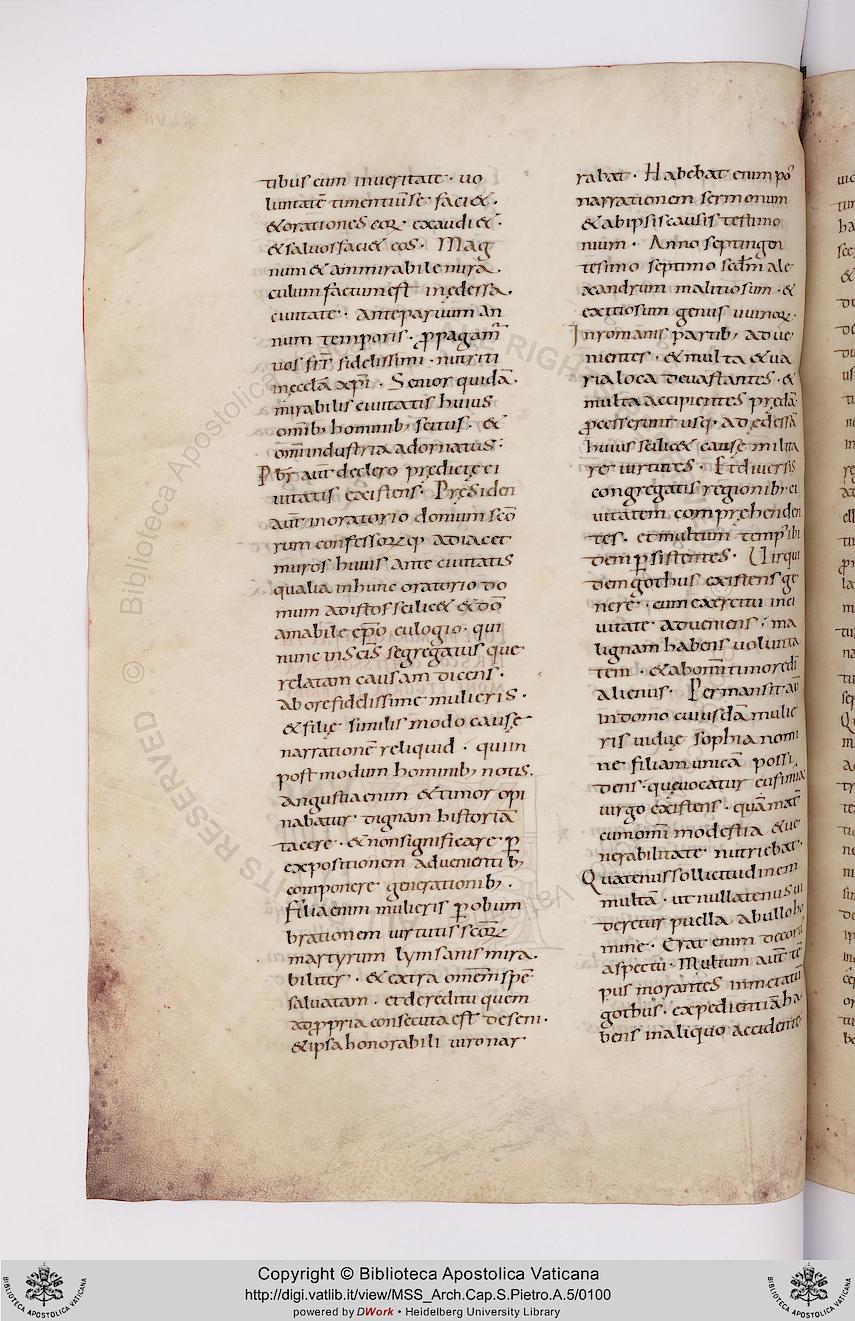 tibus eum in ueritate · uo
luntatē timentiū se faci& ·
& orationes eoꝝ exaudi& ·
& saluos faci& eos · Mag
num & ammirabile mira
culum factum est in edessa ·
ciuitate · ante paruum an
num temporis · ꝓpagam̄
uos fr̄s fidelissimi · nutriti
in eccl̄a xp̄i · Senior quidā ·
mirabilis ciuitatis huius
omīb; hominib; scitus · &
om̄i industria adornatus ·
Pbr̄ aut̄ de clero predicte ci
uitatis existens · Presiden
aut̄ in oratorio domum scō
rum confessoꝝ q̄ adiacet
muros huius ante ciuitatis
qualia in hunc oratorio do
mum ad istos scilic& & dō
amabile ep̄o eulogio · qui
nunc in sc̄is segregatus que
relatam causam dicens ·
ab ore fidelissime mulieris ·
& filie similis modo cause
narrationē reliquid · qui in
postmodum hominib; notis ·
angustia enim & timor opi
nabatur dignam historiā
tacere · & non significare ꝑ
expositionem aduenientib;
componere generationib; ·
Filia enim mulieris ꝑ obum
brationem uirtutis sc̄oꝝ
martyrum lymsanis mira
biliter · & extra omēm spē
saluatam · et de reditu quem
ad ꝓpria consecuta est de seni ·
& ipsa honorabili uiro nar
rabat · Habebat enim po
narrationem sermonum
& ab ipsis causis testimo
nium · Anno septingen
tesimo septimo scdm̄ ale
xandrum malitiosum · &
exitiosum genus uunoꝝ ·
In romanis partib; adue
nientes · & multa & ua
ria loca deuastantes · &
multa accipientes predā
ꝓcesserunt usq; ad edessā
huius scilic& cause milita
rer uirtutes · Et diuersis
congregatis regionib; ci
uitatem comprehenden
tes · et multum temp̄ ibi
dem ꝑsistentes · Uir qui
dem gothus existens ge
nere · cum exercitu in ci
uitate adueniens · ma
lignam habens uolunta
tem · & ab om̄i timore dī
alienus · Permansit aū
in domo cuiusdā mulie
ris uidue sophia nomi
ne filiam unicā possi
dens · que uocatur eufimia
uirgo existens · quā mat̄
cum om̄i modestia & ue
nerabilitate nutriebat ·
Quatenus sollicitudinem
multā · ut nullatenus ui
deretur puella ab ullo ho
mine · Erat enim decora
aspectu · Multum aut̄ tē
pus morantes in metatū
gothus · expedientiā ha
bens in aliquo accidente
Copyright © Biblioteca Apostolica Vaticana
http://digi.vatlib.it/view/MSS_Arch.Cap.S.Pietro.A.5/0100
powered by DWork • Heidelberg University Library